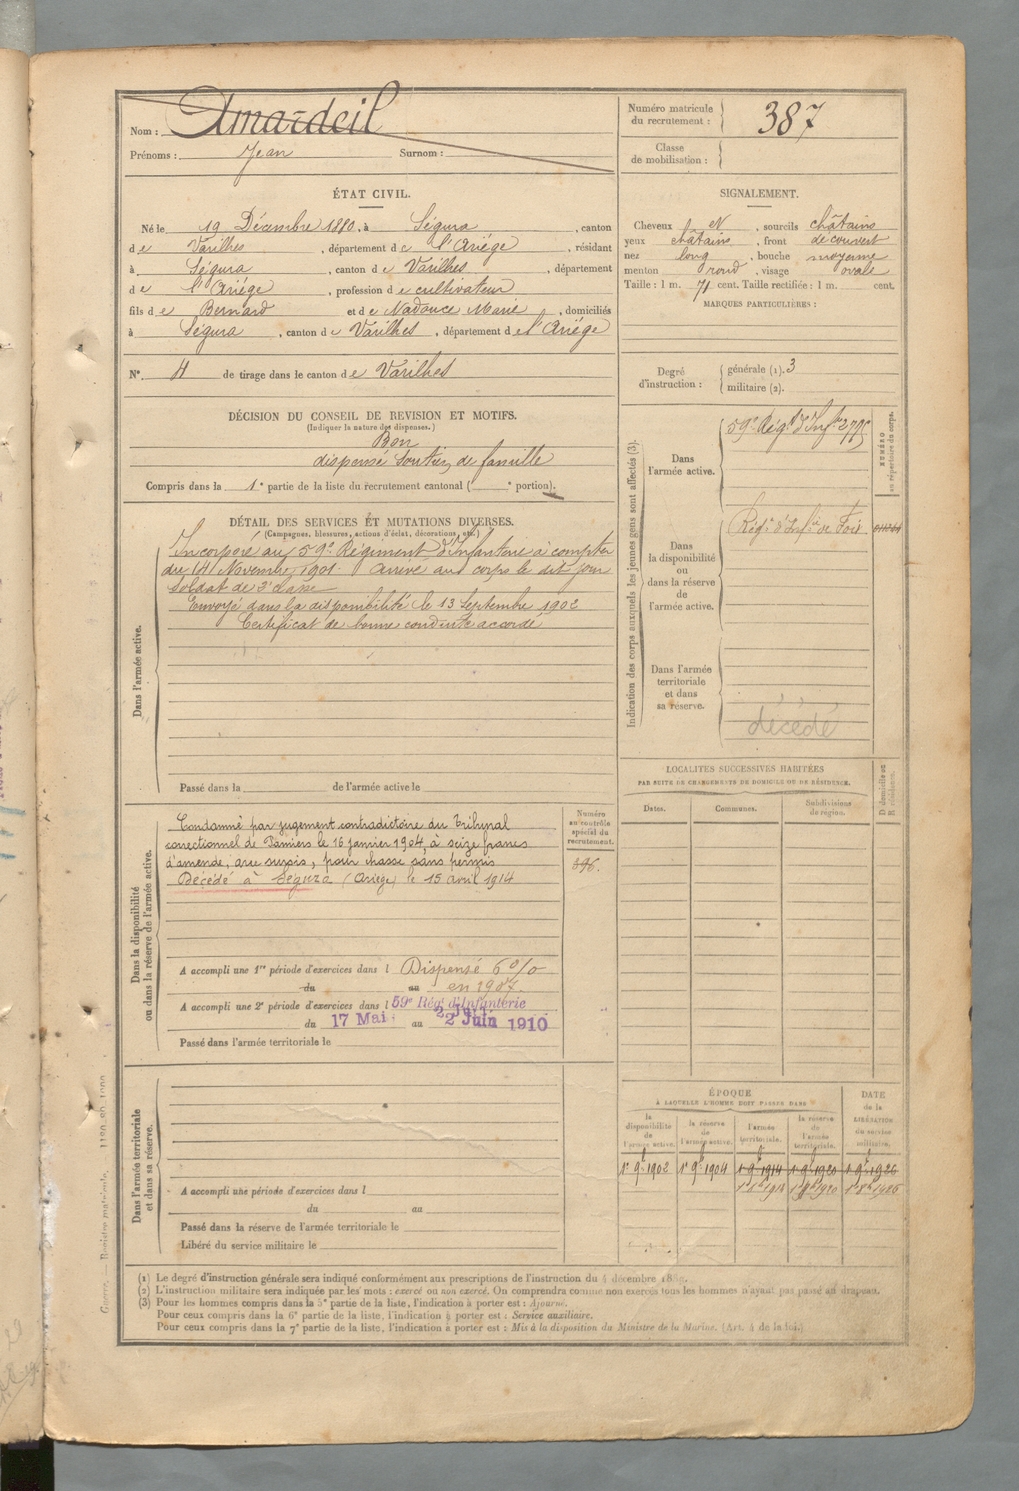 Nom : Amardeil
Prénoms : Jean Surnom :
Numéro matricule du recrutement : 387
Classe de mobilisation :
ÉTAT CIVIL.
Né le 19 Décembre 1880, à Ségura, canton
de Varilhes, département de l'Ariége, résidant
à Ségura, canton de Varilhes, département
de l'Ariége, profession de cultivateur
fils de Bernard et de Nadouce Marie, domiciliés
à Ségura, canton de Varilhes, département de l'Ariége
N° 4 de tirage dans le canton de Varilhes
SIGNALEMENT.
Cheveux et, sourcils châtains
yeux châtains, front découvert
nez long, bouche moyenne
menton rond, visage ovale
Taille : 1 m. 71 cent. Taille rectifiée : 1 m. cent.
MARQUES PARTICULIÈRES :
Degré d'instruction : générale (1). 3
militaire (2).
DÉCISION DU CONSEIL DE REVISION ET MOTIFS.
(Indiquer la nature des dispenses.)
Bon
dispensé soutien de famille
Compris dans la 1e partie de la liste du recrutement cantonal ( e portion).
DÉTAIL DES SERVICES ET MUTATIONS DIVERSES.
(Campagnes, blessures, actions d'éclat, décorations, etc.)
Dans l'armée active.
Incorporé au 59e Régiment d'Infanterie à compter
du 14 Novembre 1901. Arrivé au corps le dit jour
soldat de 2e classe
Envoyé dans la disponibilité le 13 Septembre 1902
Certificat de bonne conduite accordé
Passé dans la de l'armée active le
Indication des corps auxquels les jeunes gens sont affectés (3).
NUMÉRO au répertoire du corps.
Dans l'armée active.
59e Régt d'Infrie
Dans la disponibilité ou dans la réserve de l'armée active.
Régt d'Infie de Foix
Dans l'armée territoriale et dans sa réserve.
décédé
LOCALITÉS SUCCESSIVES HABITÉES
PAR SUITE DE CHANGEMENTS DE DOMICILE OU DE RÉSIDENCE.
Dates. Communes. Subdivisions de région. D domicile ou R résidence.
Dans la disponibilité ou dans la réserve de l'armée active.
Numéro au contrôle spécial du recrutement.
396.
Condamné par jugement contradictoire du Tribunal
correctionnel de Pamiers le 16 janvier 1904, à seize francs
d'amende, avec sursis, pour chasse sans permis
Décédé à Ségura (Ariège) le 15 avril 1914
A accompli une 1re période d'exercices dans l Dispensé 6 0/0
du au en 1907.
A accompli une 2e période d'exercices dans l 59e Régt d'Infanterie
du 17 Mai au 2 Juin 1910
Passé dans l'armée territoriale le
Dans l'armée territoriale et dans sa réserve.
A accompli une période d'exercices dans l
du au
Passé dans la réserve de l'armée territoriale le
Libéré du service militaire le
ÉPOQUE
À LAQUELLE L'HOMME DOIT PASSER DANS
la disponibilité de l'armée active. la réserve de l'armée active. l'armée territoriale. la réserve de l'armée territoriale.
DATE de la LIBÉRATION du service militaire.
1er 9bre 1902 1er 9bre 1904 1er 9bre 1914 1er 9bre 1920 1er 9bre 1926
(1) Le degré d'instruction générale sera indiqué conformément aux prescriptions de l'instruction du 4 décembre
(2) L'instruction militaire sera indiquée par les mots : exercé ou non exercé. On comprendra comme non exercés tous les hommes n'ayant pas passé au drapeau.
(3) Pour les hommes compris dans la 5e partie de la liste, l'indication à porter est : Ajourné.
Pour ceux compris dans la 6e partie de la liste, l'indication à porter est : Service auxiliaire.
Pour ceux compris dans la 7e partie de la liste, l'indication à porter est : Mis à la disposition du Ministre de la Marine. (Art. 4 de la loi.)
Guerre. — Registre matricule.